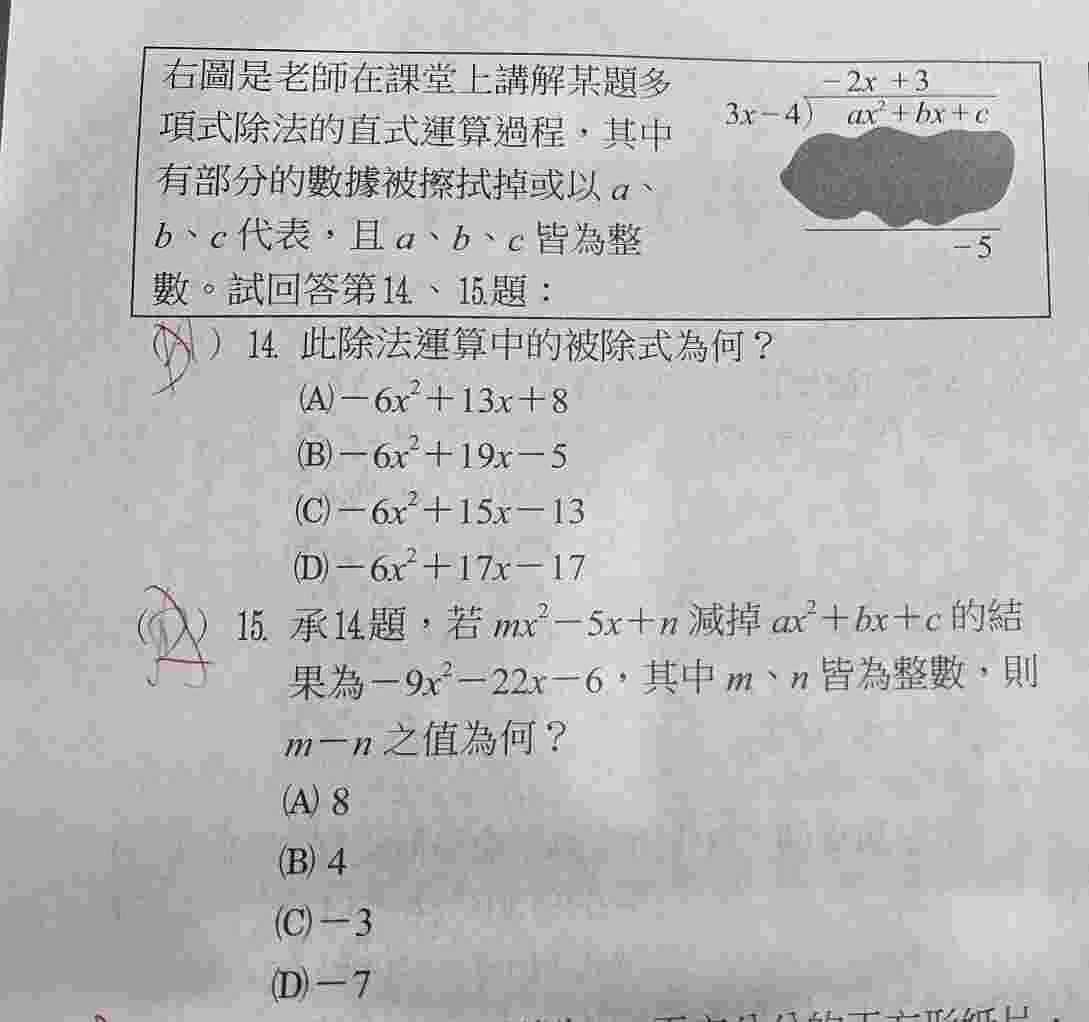 右圖是老師在課堂上講解某題多
項式除法的直式運算過程，其中
有部分的數據被擦拭掉或以 a、
b、c 代表，且 a、b、c 皆為整
數。試回答第14、15題：
-2x +3
3x-4) ax²+bx+c
-5
( ) 14. 此除法運算中的被除式為何？
(A)-6x²+13x+8
(B)-6x²+19x-5
(C)-6x²+15x-13
(D)-6x²+17x-17
( ) 15. 承14.題，若 mx²-5x+n 減掉 ax²+bx+c 的結
果為-9x²-22x-6，其中 m、n 皆為整數，則
m-n 之值為何？
(A) 8
(B) 4
(C)-3
(D)-7